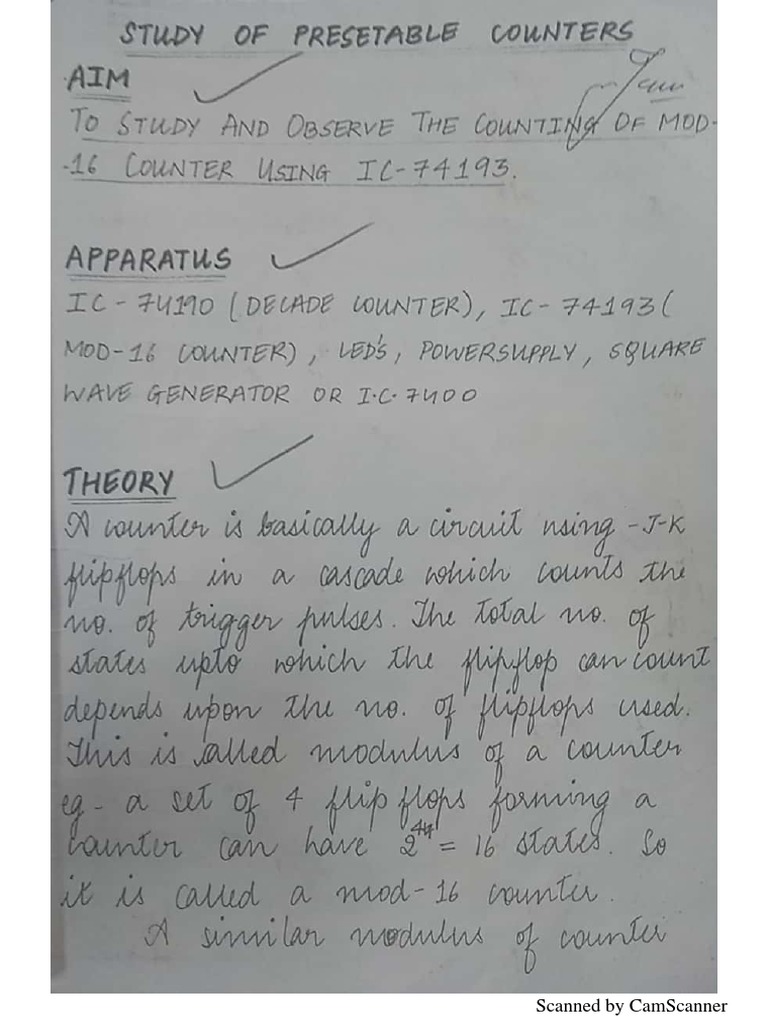 STUDY OF PRESETABLE COUNTERS
AIM
TO STUDY AND OBSERVE THE COUNTING OF MOD-
-16 COUNTER USING IC-74193.
APPARATUS
IC-74190 (DECADE COUNTER), IC-74193(
MOD-16 COUNTER), LED'S, POWERSUPPLY, SQUARE
WAVE GENERATOR OR I.C.7400
THEORY
A counter is basically a circuit using -J-K
flipflops in a cascade which counts the
no. of trigger pulses. The total no. of
states upto which the flipflop can count
depends upon the no. of flipflops used.
This is called modulus of a counter
eg- a set of 4 flip flops forming a
counter can have 2^4 = 16 states. So
it is called a mod-16 counter.
A similar modulus of counter
Scanned by CamScanner